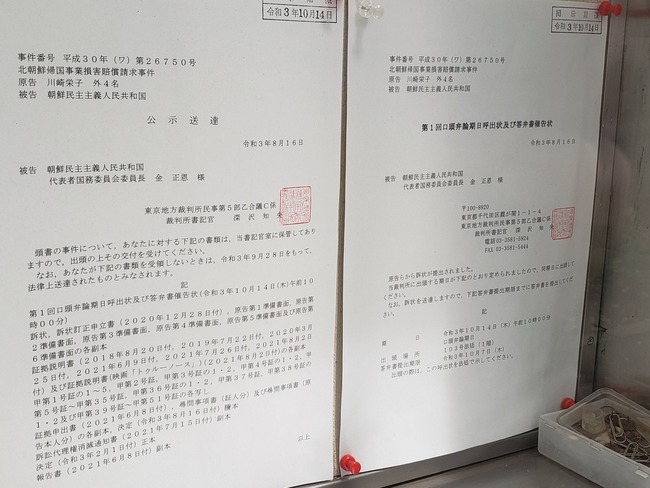 令和3年10月14日
事件番号 平成30年(ワ)第26750号
北朝鮮帰国事業損害賠償請求事件
原告 川崎栄子 外4名
被告 朝鮮民主主義人民共和国
公示送達
令和3年8月16日
被告 朝鮮民主主義人民共和国
代表者国務委員会委員長 金正恩 様
東京地方裁判所民事第5部乙合議C係
裁判所書記官 深沢知
頭書の事件について,あなたに対する下記の書類は,当書記官室に保管してあり
ますので,出頭の上その交付を受けてください。
なお,あなたが下記の書類を受領しないときは,令和3年9月28日をもって,
法律上送達されたものとみなされます。
記
第1回口頭弁論期日呼出状及び答弁書催告状(令和3年10月14日(木)午前10
時00分)
訴状,訴状訂正申立書(2020年12月28日付),原告第1準備書面,原告第
2準備書面,原告第3準備書面,原告第4準備書面,原告第5準備書面及び原告第
6準備書面の各副本
証拠説明書(2018年8月20日付,2019年7月22日付,2020年3月
25日付,2021年6月9日付,2021年7月26日付,2021年8月2日
付)及び証拠説明書(映画「トゥルーノース」)(2021年8月2日付)の各副本
甲第1号証の1~5,甲第2号証,甲第3号証の1・2,甲第4号証の1・2,甲
第5号証~甲第35号証,甲第36号証の1・2,甲第37号証,甲第38号証の
1・2及び甲第39号証~甲第51号証の各写し
証拠申出書(2021年6月8日付),尋問事項書(証人分)及び尋問事項書(原
告本人分)の各副本,決定(令和3年8月16日付)謄本
訴訟代理権消滅通知書(2021年7月15日付)副本
決定(令和3年2月1日付)正本
報告書(2021年6月8日付)副本
以上
令和3年10月14日
事件番号 平成30年(ワ)第26750号
北朝鮮帰国事業損害賠償請求事件
原告 川崎栄子 外4名
被告 朝鮮民主主義人民共和国
第1回口頭弁論期日呼出状及び答弁書催告状
令和3年8月16日
被告 朝鮮民主主義人民共和国
代表者国務委員会委員長 金正恩 様
〒100-8920
東京都千代田区霞が関1-1-4
東京地方裁判所民事第5部乙合議C係
裁判所書記官 深沢知
電話 03-3581-5924
FAX 03-5444
原告らから訴状が提出されました。
当裁判所に出頭する期日が下記のとおり定められましたので,同期日に出頭して
ください。
なお,訴状を送達しますので,下記答弁書提出期限までに答弁書を提出してくだ
さい。
記
期日 令和3年10月14日(木)午前10時00分
口頭弁論期日
出頭場所 103号法廷(1階)
答弁書提出期限 令和3年10月7日(木)
出頭の際は,この呼出状を法廷で示してください。